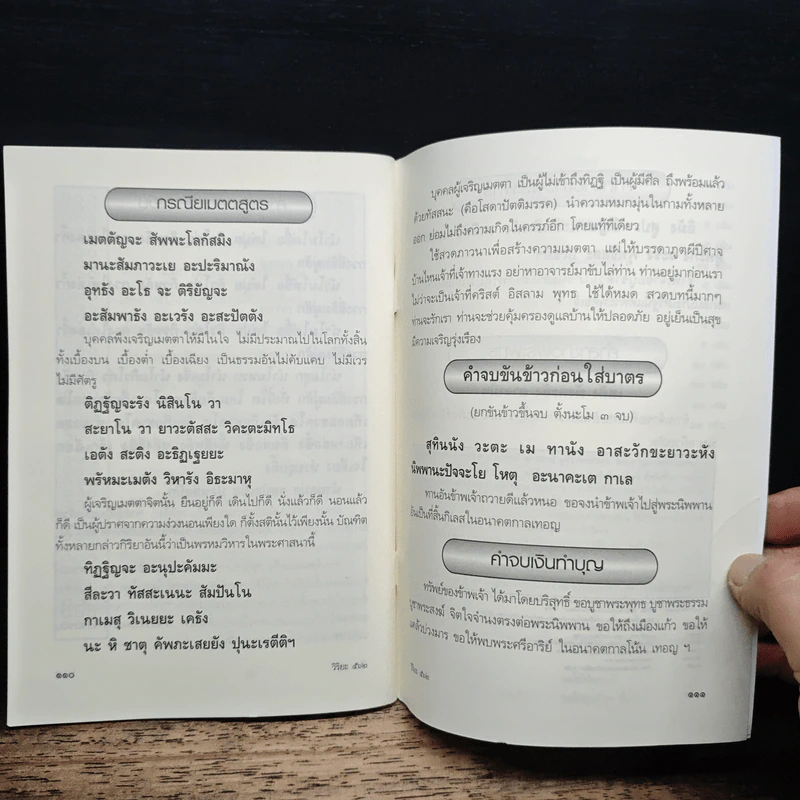 กรณียเมตตสูตร
เมตตัญจะ สัพพะโลกัสมิง
มานะสัมภาวะเย อะปะริมาณัง
อุทธัง อะโธ จะ ติริยัญจะ
อะสัมพาธัง อะเวรัง อะสะปัตตัง
บุคคลพึงเจริญเมตตาให้มีในใจ ไม่มีประมาณไปในโลกทั้งสิ้น
ทั้งเบื้องบน เบื้องต่ำ เบื้องเฉียง เป็นธรรมอันไม่คับแคบ ไม่มีเวร
ไม่มีศัตรู
ติฏฐัญจะรัง นิสินโน วา
สะยาโน วา ยาวะตัสสะ วิคะตะมิทโธ
เอตัง สะติง อะธิฏเฐยยะ
พรัหมะเมตัง วิหารัง อิธะมาหุ
ผู้เจริญเมตตาจิตนั้น ยืนอยู่ก็ดี เดินไปก็ดี นั่งแล้วก็ดี นอนแล้ว
ก็ดี เป็นผู้ปราศจากความง่วงนอนเพียงใด ก็ตั้งสตินั้นไว้เพียงนั้น บัณฑิต
ทั้งหลายกล่าวกิริยาอันนี้ว่าเป็นพรหมวิหารในพระศาสนานี้
ทิฏฐิญจะ อะนุปะคัมมะ
สีละวา ทัสสะเนนะ สัมปันโน
กาเมสุ วิเนยยะ เคธัง
นะ หิ ชาตุ คัพภะเสยยัง ปุนะเรตีติฯ
๑๑๐
วิริยะ ๕๖๒
บุคคลผู้เจริญเมตตา เป็นผู้ไม่เข้าถึงทิฏฐิ เป็นผู้มีศีล ถึงพร้อมแล้ว
ด้วยทัสสนะ (คือโสดาปัตติมรรค) นำความหมกมุ่นในกามทั้งหลาย
ออก ย่อมไม่ถึงความเกิดในครรภ์อีก โดยแท้ทีเดียว
ใช้สวดภาวนาเพื่อสร้างความเมตตา แผ่ให้บรรดาภูตผีปีศาจ
บ้านไหนเจ้าที่เจ้าทางแรง อย่าหาอาจารย์มาขับไล่ท่าน ท่านอยู่มาก่อนเรา
ไม่ว่าจะเป็นเจ้าที่คริสต์ อิสลาม พุทธ ใช้ได้หมด สวดบทนี้มากๆ
ท่านจะรักเรา ท่านจะช่วยคุ้มครองดูแลบ้านให้ปลอดภัย อยู่เย็นเป็นสุข
มีความเจริญรุ่งเรือง
คำจบขันข้าวก่อนใส่บาตร
(ยกขันข้าวขึ้นจบ ตั้งนะโม ๓ จบ)
สุทินนัง วะตะ เม ทานัง อาสะวักขะยาวะหัง
นิพพานะปัจจะโย โหตุ อะนาคะเต กาเล
ทานอันข้าพเจ้าถวายดีแล้วหนอ ขอจงนำข้าพเจ้าไปสู่พระนิพพาน
อันเป็นที่สิ้นกิเลสในอนาคตกาลเทอญ
คำจบเงินทำบุญ
ทรัพย์ของข้าพเจ้า ได้มาโดยบริสุทธิ์ ขอบูชาพระพุทธ บูชาพระธรรม
บูชาพระสงฆ์ จิตใจจำนงตรงต่อพระนิพพาน ขอให้ถึงเมืองแก้ว ขอให้
แคล้วบ่วงมาร ขอให้พบพระศรีอาริย์ ในอนาคตกาลโน้น เทอญ ฯ
วิริยะ ๕๖๒
๑๑๑